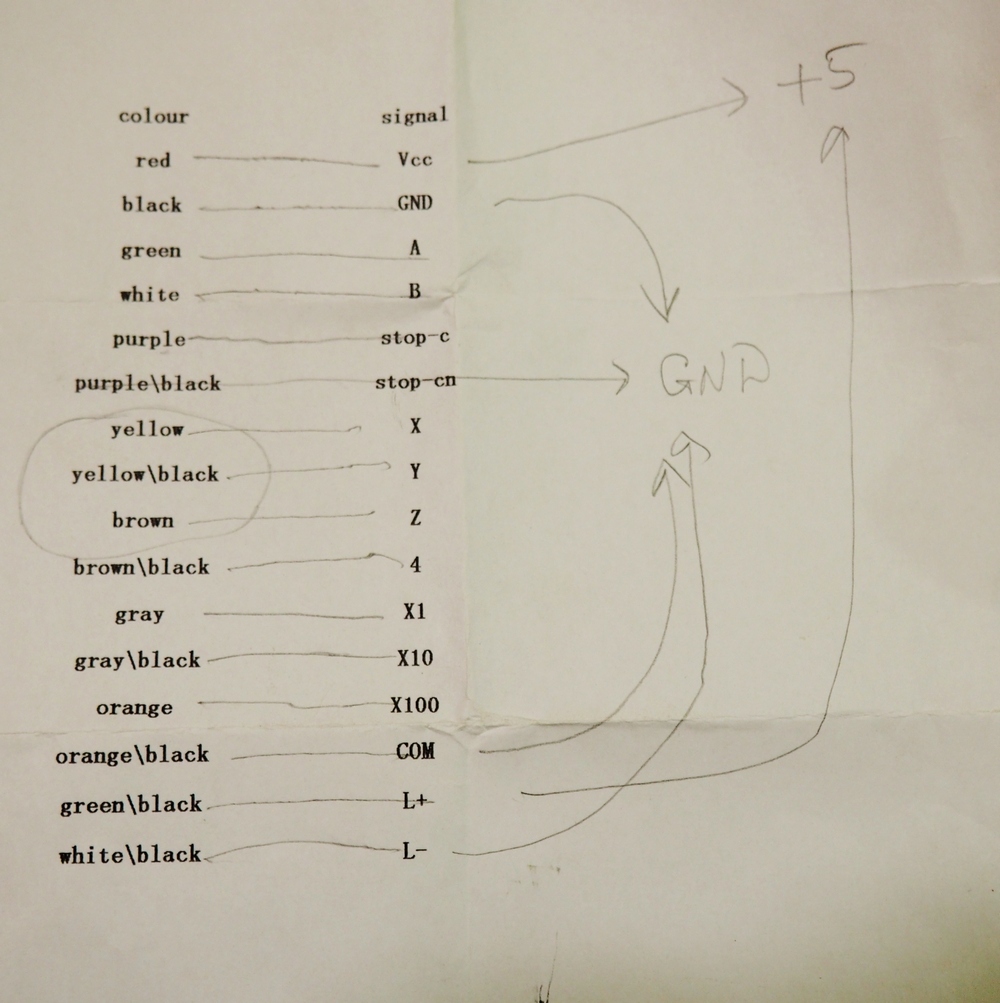 +5
colour signal
red Vcc
black GND
green A
white B
purple stop-c
purple\black stop-cn GND
yellow X
yellow\black Y
brown Z
brown\black 4
gray X1
gray\black X10
orange X100
orange\black COM
green\black L+
white\black L-